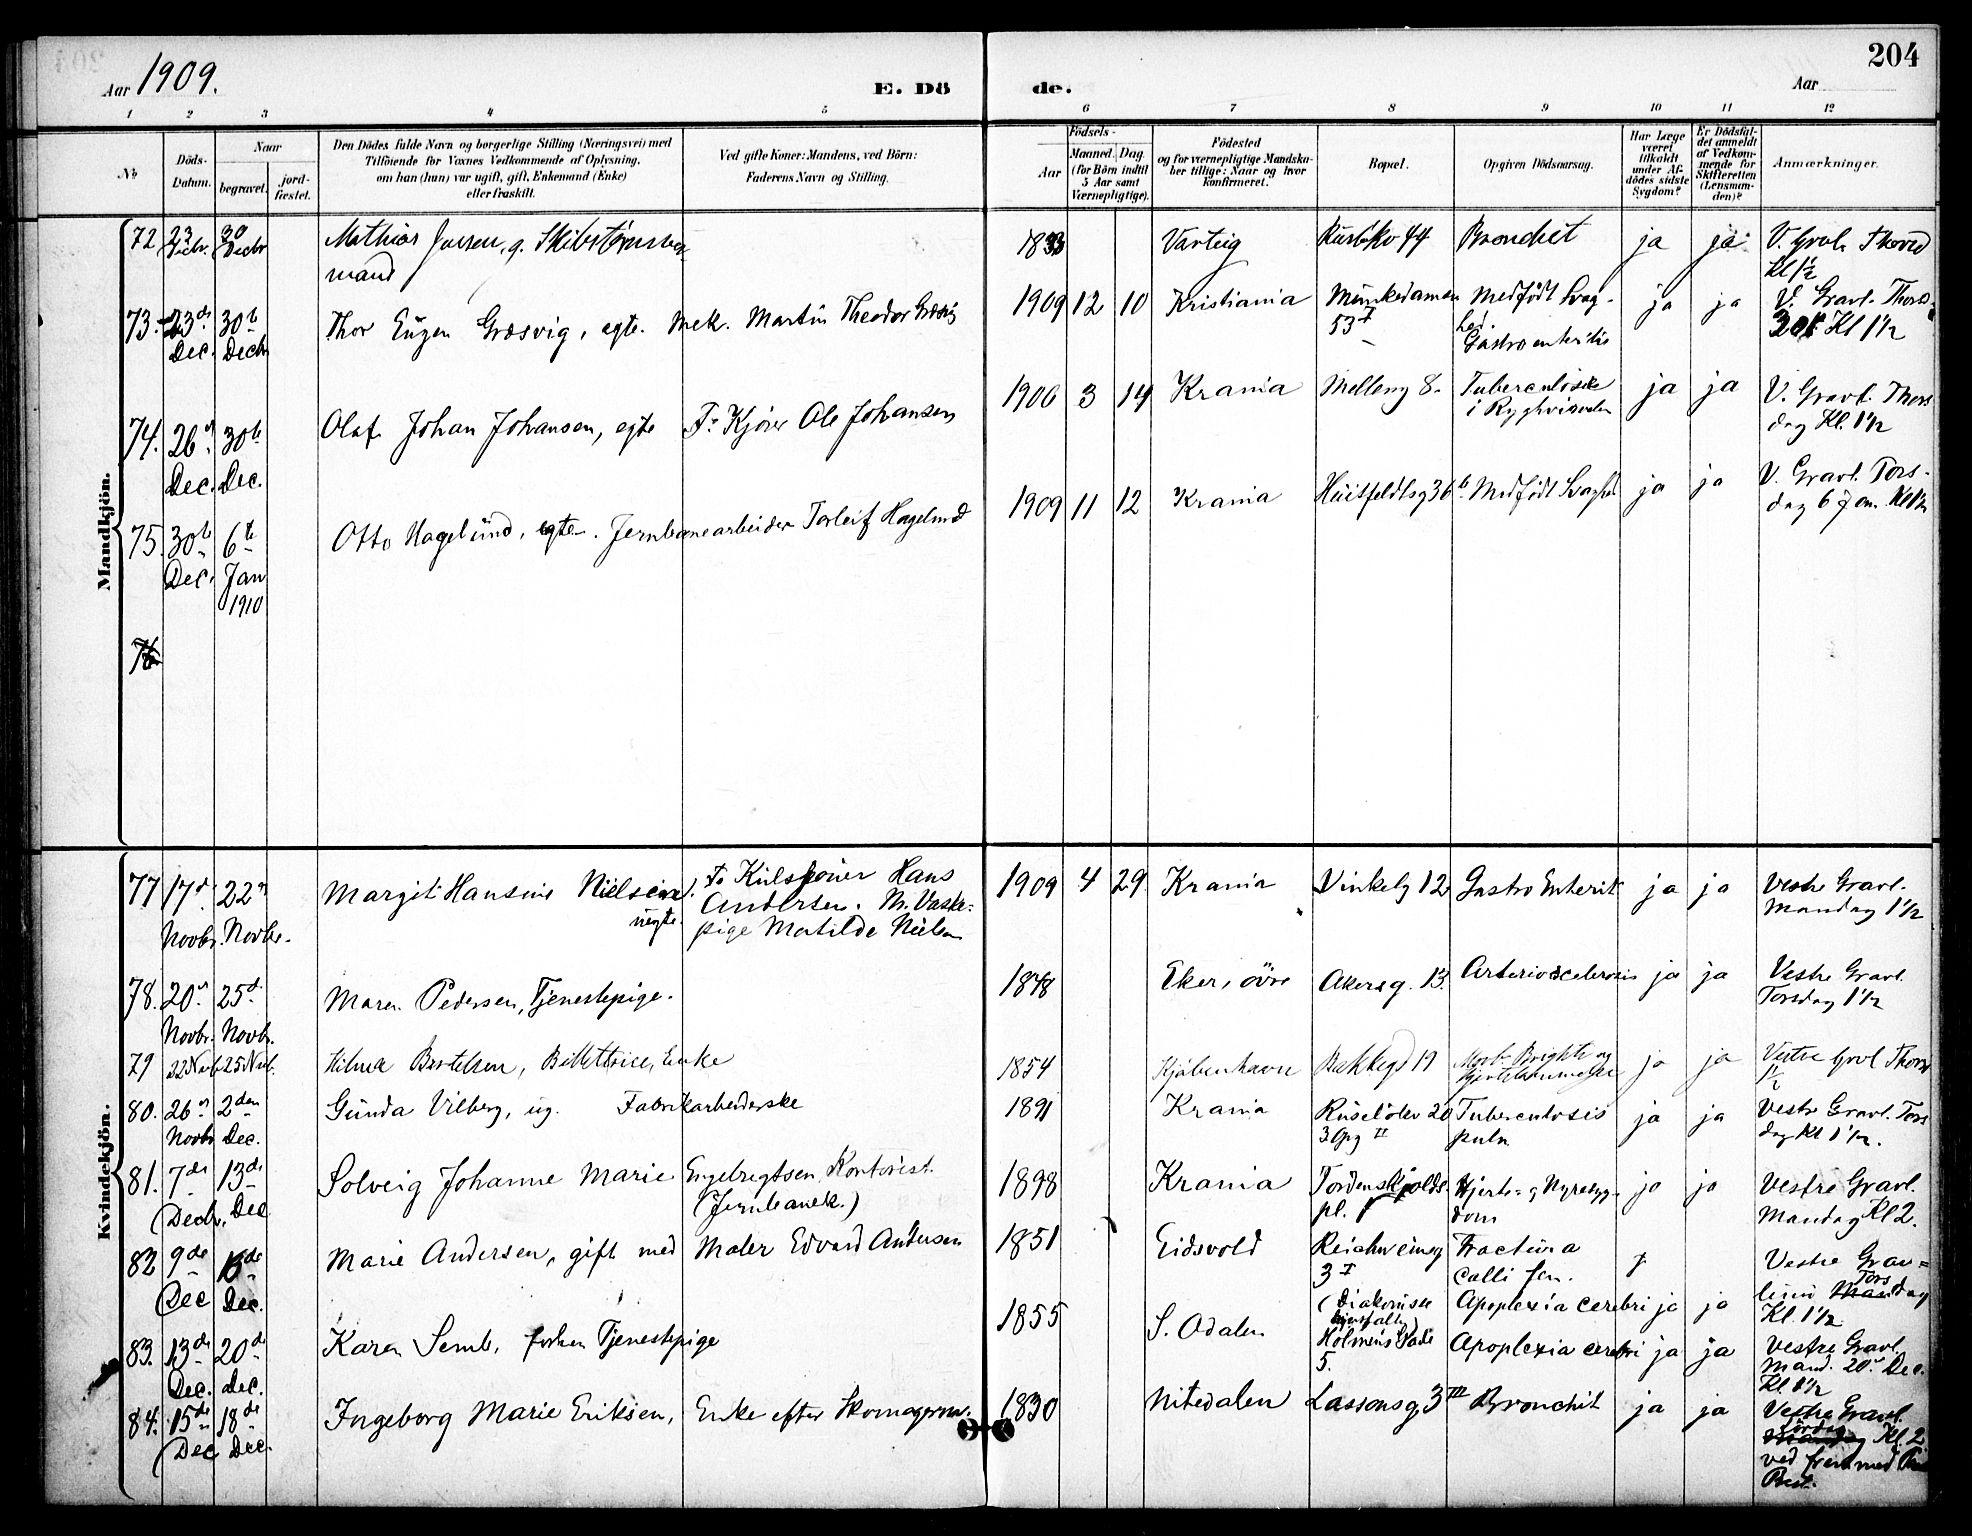 204
Aar 1909.
E. Döde.
Aar
1 2 3 4 5 6 7 8 9 10 11 12
No
Döds-Datum.
Naar
begravet.
jord-fæstet.
Den Dödes fulde Navn og borgerlige Stilling (Næringsvei) med
Tilföiende for Voxnes Vedkommende af Oplysning,
om han (hun) var ugift, gift, Enkemand (Enke)
eller fraskilt.
Ved gifte Koner: Mandens, ved Börn:
Faderens Navn og Stilling.
Födsels-
Aar
Maaned. Dag.
(for Börn indtil
5 Aar samt
Værnepligtige).
Födested
og for værnepligtige Mandska-
ber tillige: Naar og hvor
konfirmeret.
Bopæl.
Opgiven Dödsaarsag.
Har Læge
været
tilkaldt
under Af-
dödes sidste
Sygdom?
Er Dödsfal-
det anmeldt
af Vedkom-
mende for
Skifteretten
(Lensman-
den)?
Anmærkninger.
Mandkjön.
72 23 Decbr. 30 Decbr Mathias Jansen, g. 1833 Varteig 44 Bronchit ja ja V. Gravl.
mand Kl 1½
73 23de Dec. 30te Decb Thor Eugen Græsvig, egte. Mek. Martin Theodor Græsvig 1909 12 10 Kristiania Munkedamsv 53 I Medfödt Svag-hed. Gastroenteritis ja ja V. Gravl. Thors-
30t Kl 1½
74. 26n Dec. 30te Dec. Olaf Johan Johansen, egte F: Kjörer Ole Johansen 1906 3 14 Krania Mellemg 8. Tuberculose i Ryghvirvelen ja ja V. Gravl. Thors
dag Kl. 1½
75. 30te Dec. 6te Jan 1910 Otto Hagelund, egte. Jernbanearbeider Torleif Hagelund 1909 11 12 Krania Huitfeldtsg 36 b. Medfödt Svaghed ja ja V. Gravl. Tors-
dag 6 Jan. Kl 1½
76
Kvindekjön.
77 17de Novbr. 22n Novbr. Margit Hansine Nielsen uegte. Fa Kulskjörer Hans Andersen. M. Vaske-pige Matilde Nielsen 1909 4 29 Krania Vinkelg 12 Gastro Enterit ja ja Vestre Gravl.
Mandag 1½
78. 20n Novbr. 25de Novbr. Maren Pedersen, Tjenestepige. 1848 Eker, övre Akersg. 13. Arteriosclerosis ja ja Vestre Gravl.
Torsdag 1½
79 22 Novb 25 Novb. Hilma Bertelsen, Billettrice, Enke 1854 Kjöbenhavn Bakkegd 19 Morb. Brightii og ja ja Vestre Gravl Thors
½
80. 26n Novbr 2den Dec. Gunda Vilberg, ug. Fabrikarbeiderske 1891 Krania Ruselökv 20 3 Opg II Tuberculosis pulm ja ja Vestre Gravl. Tors
dag Kl 1½.
81. 7de Decbr. 13de Dec Solveig Johanne Marie Engebregtsen, Kontorist (Jernbanek.) 1898 Krania Tordenskjolds pl. 1 Hjerte- og Nyresyg-dom ja ja Vestre Gravl.
Mandag Kl 2.
82 9de Dec 16de Dec. Marie Andersen, gift med Maler Edvard Andersen 1851 Eidsvold Reichweinsg 3 I Fractura Colli fem. Vestre Grav=
lund Mandag Tors
Kl. 1½
83. 13de Dec. 20de Dec. Karen Semb, forhen Tjenestepige 1855 S. Odalen (Diakonisse Holmens Gade 5. Apoplexia cerebri ja ja
Apoplexia cerebri ja ja Vestre Gravl.
Mand. 20de Dec.
Kl 1½
84. 15de Dec 18de Dec. Ingeborg Marie Eriksen, Enke efter Skomagerm. 1830 Nitedalen Lassonsg 3 III Bronchit ja ja Vestre Gravl.
Lördag Kl 2
ved fremmed